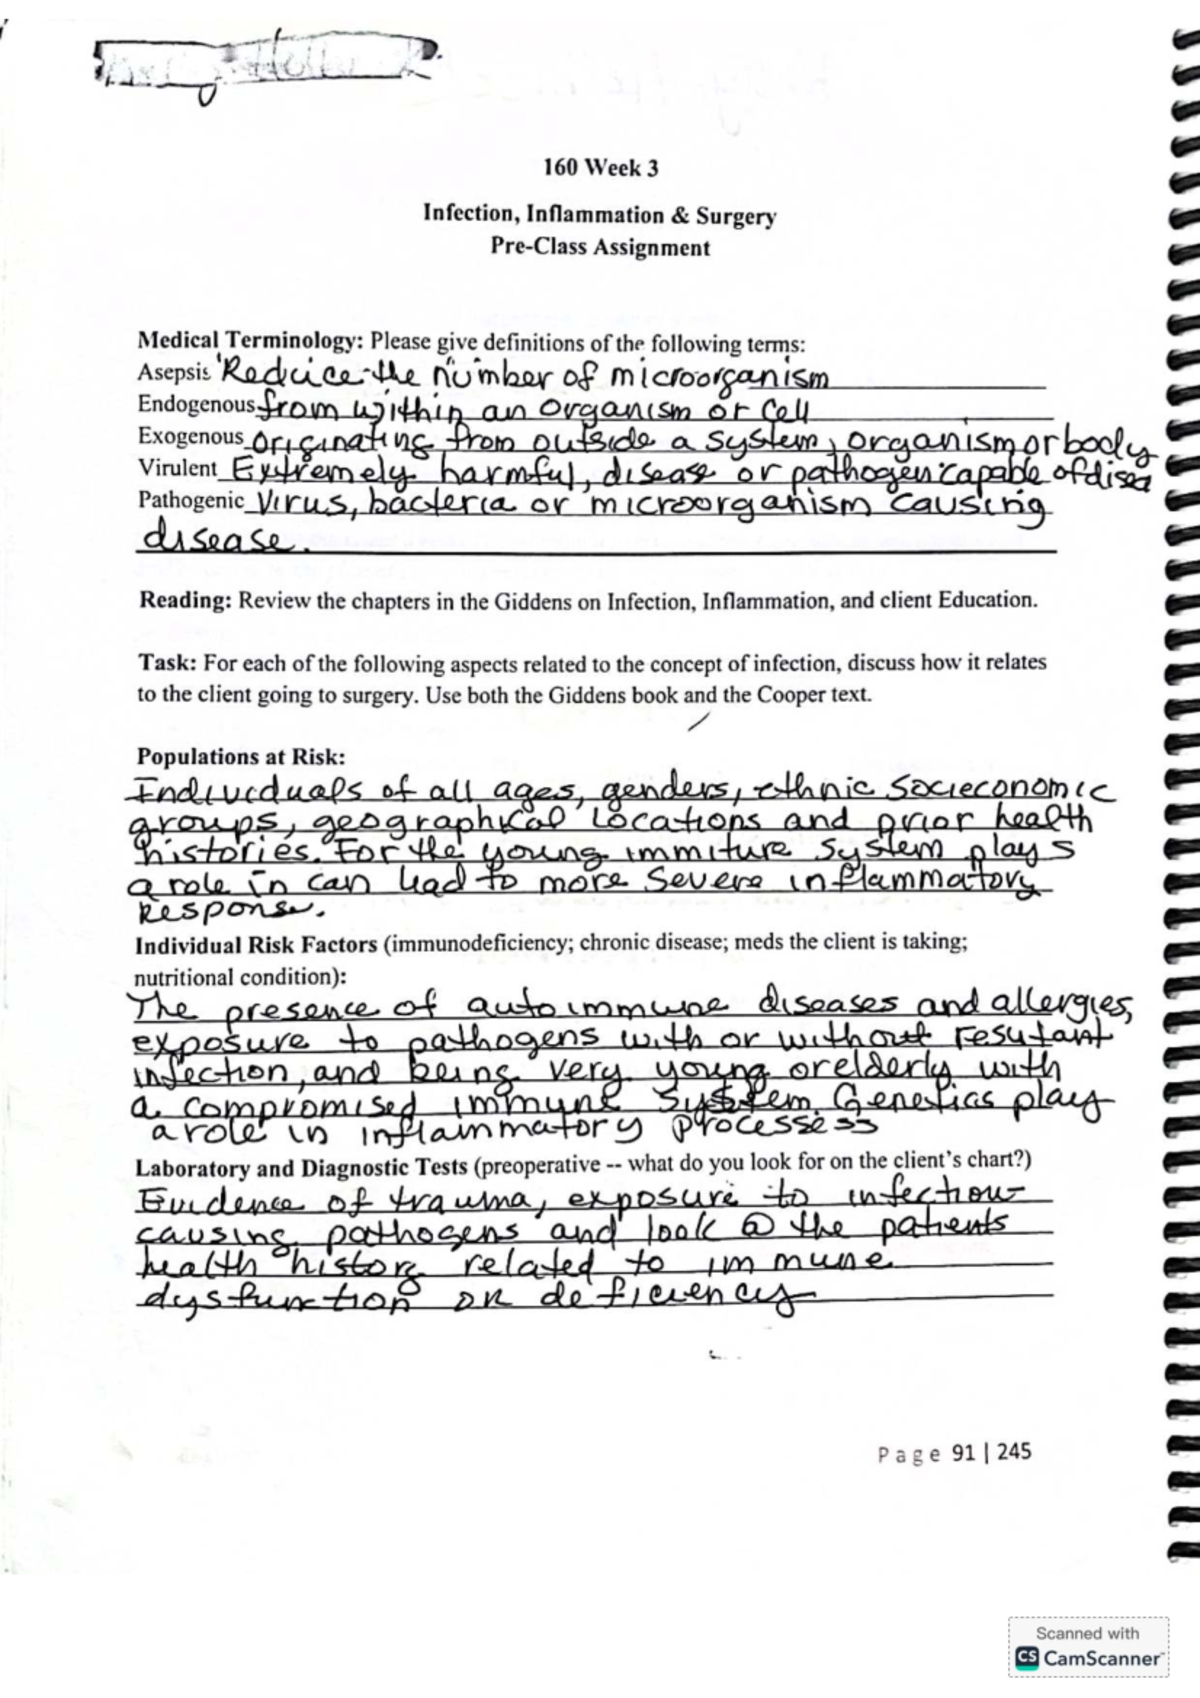 160 Week 3
Infection, Inflammation & Surgery
Pre-Class Assignment
Medical Terminology: Please give definitions of the following terms:
Asepsis Reduce the number of microorganism
Endogenous from within an organism or cell
Exogenous originating from outside a system, organism or body
Virulent Extremely harmful, disease or pathogen capable of disea
Pathogenic Virus, bacteria or microorganism causing
disease.
Reading: Review the chapters in the Giddens on Infection, Inflammation, and client Education.
Task: For each of the following aspects related to the concept of infection, discuss how it relates
to the client going to surgery. Use both the Giddens book and the Cooper text.
Populations at Risk:
Individuals of all ages, genders, ethnic socieconomic
groups, geographical locations and prior health
histories. For the young immiture system plays
a role in can lead to more severe inflammatory
response.
Individual Risk Factors (immunodeficiency; chronic disease; meds the client is taking;
nutritional condition):
The presence of autoimmune diseases and allergies,
exposure to pathogens with or without resutant
infection, and being very young or elderly with
a compromised immune system Genetics play
a role in inflammatory processess
Laboratory and Diagnostic Tests (preoperative -- what do you look for on the client's chart?)
Evidence of trauma, exposure to infection
causing pathogens and look @ the patients
health history related to immune
dysfunction or deficiency
Page 91 | 245
Scanned with
CS CamScanner